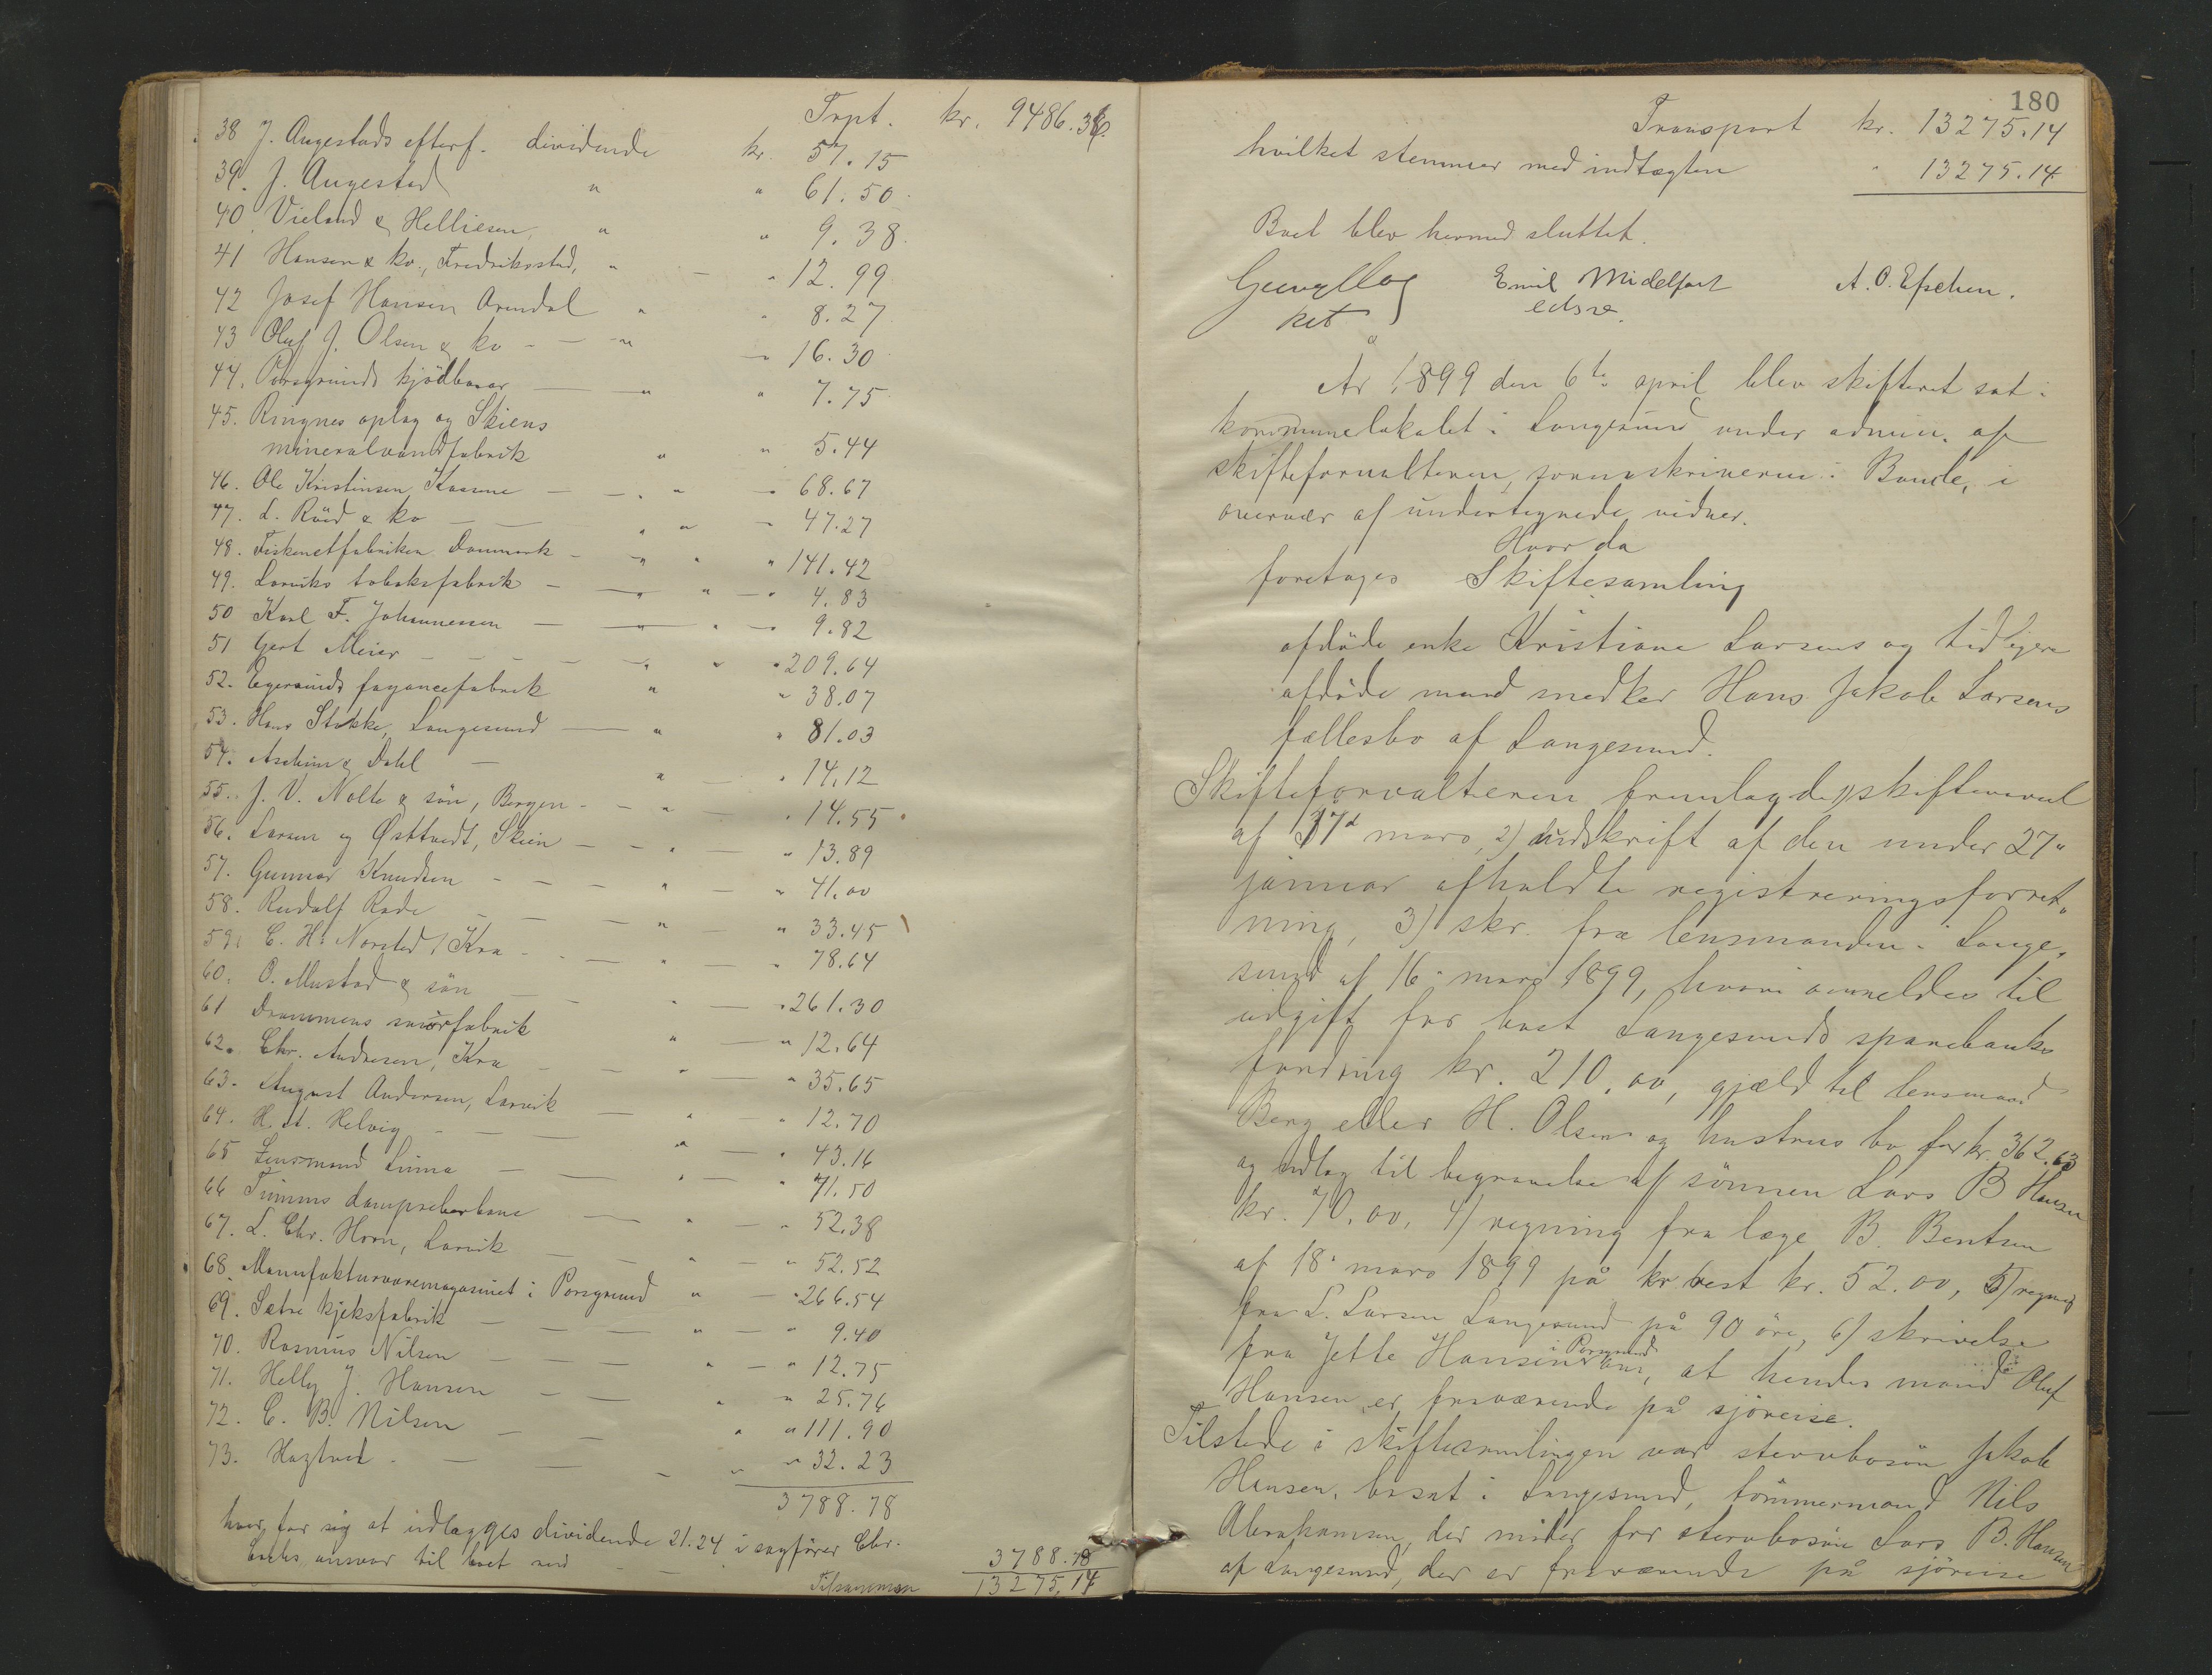 Trpt. kr. 9486.36
38 J. Augestads efterf. dividende kr. 57.15
39. J. Augestad " " 61.50
40. Vieland & Helliesen, " " 9.38
41 Hansen & ko., Fredriksstad, " " 12.99
42 Josef Hansen Arendal " " 8.27
43 Oluf J. Olsen & ko " 16.30
44. Porsgrunds kjødbasar " " 7.75
45. Ringnes oplag og Skiens
mineralvandfabrik " " 5.44
46. Ole Kristinsen " 68.67
47. L. Röed & ko " 47.27
48. Fiskenetfabriken Danmark " " 141.42
49. Larviks tobaksfabrik " " 4.83
50 Karl F. Johannessen " " 9.82
51 Gert Meier " " 209.64
52. Egersunds fayancefabrik " " 38.07
53. Hans Stokke, Langesund " " 81.03
54. & Dahl " " 14.12
55. J. V. Nolte & sön, Bergen " " 14.55
56. Larsen og Østtvedt, Skien " " 13.89
57. Gunnar Knudsen " " 41.00
58. Rudolf Rode " " 33.45
59. C. H. Norsted, Kra " " 78.64
60. O. Mustad & sön " " 261.30
61 Drammens smörfabrik " " 12.64
62. Chr. Andresen, Kra " " 35.65
63. August Andersen, Larvik " " 12.70
64. H. A. Helvig " " 43.16
65 Lensmand Linna " " 71.50
66 " " 52.38
67. L. Chr. Horn, Larvik " " 52.52
68. Manufakturvaremagasinet i Porsgrund " " 266.54
69. Sætre kjeksfabrik " " 9.40
70. Rasmus Nilsen " " 12.75
71. Helly J. Hansen " " 25.76
72. C. B. Nilsen " " 111.90
73. " " 32.23
3788.78
hver for sig at udlægges dividende 21.24 i sagfører Chr.
ansvar til boet med 3788.78
Tilsammen 13275.14
180
Transport kr. 13275.14
hvilket stemmer med indtægten " 13275.14
Boet blev hermed sluttet.
Emil Midelfart A. O. Eschen.
edsv.
År 1899 den 6te april blev skifteret sat i
kommunelokalet i Langesund under admin. af
skifteforvalteren, sorenskriveren i Bamle, i
overvær af undertegnede vidner.
Hvor da
foretages Skiftesamling
afdöde enke Kristiane Larsens og tidligere
afdöde mand snedker Hans Jakob Larsens
fællesbo af Langesund.
Skifteforvalteren fremlagde 1) skiftevarsel
af 17d mars, 2) udskrift af den under 27"
januar afholdte registreringsforret"
ning, 3) skr. fra lensmanden i Lange"
sund af 16" mars 1899, hvori anmeldes til
udgift for boet Langesunds sparebanks
fordring kr. 210.00, gjæld til lensmand
Berg eller H. Olsen og hustrus bo for kr. 362.63
og udlæg til begravelse af sönnen Lars B Hansen
kr. 70.00, 4) regning fra læge B. Bentsen
af 18" mars 1899 på kr rest kr. 52.00, 5) regning
fra L. Larsen Langesund på 90 öre, 6) skrivelse
fra Jette Hansen i Porsgrund om, at hendes mand Oluf
Hansen er fraværende på sjöreise.
Tilstede i skiftesamlingen var stervbosön Jakob
Hansen, bosat i Langesund, tömmermand Nils
Abrahamsen, der möder for stervbosön Lars B. Hansen
af Langesund, der er fraværende på sjöreise